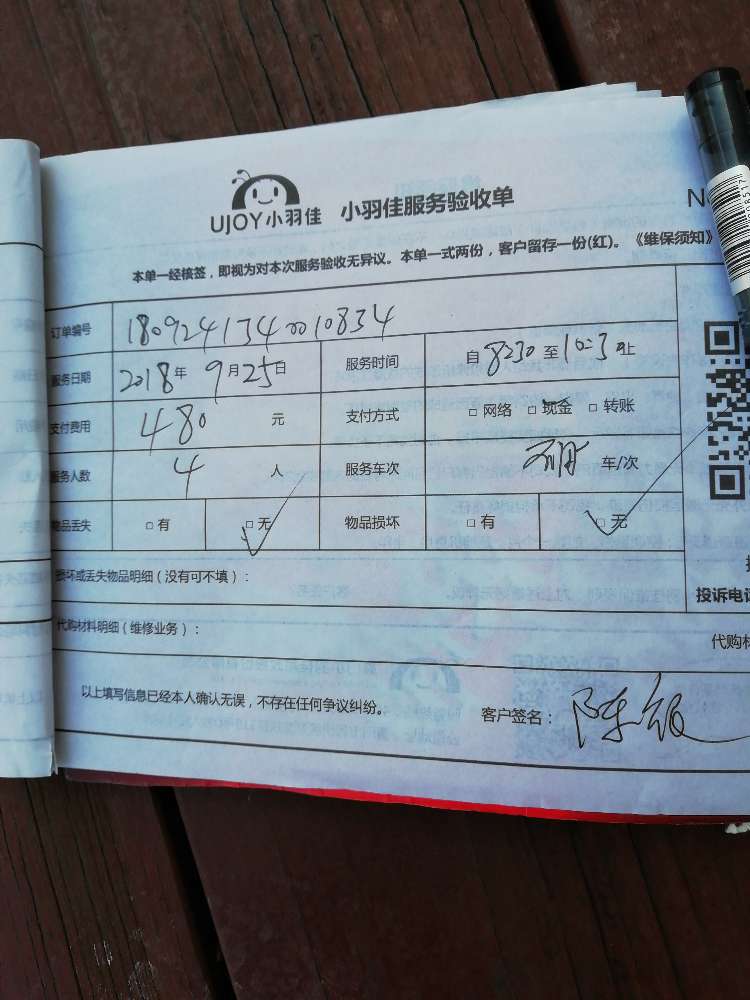 UJOY小羽佳 小羽佳服务验收单
本单一经核签，即视为对本次服务验收无异议。本单一式两份，客户留存一份(红)。《维保须知》
订单编号 1809241340010834
服务日期 2018年 9月25日 服务时间 自8:30至10:30止
支付费用 480 元 支付方式 □网络 □现金 □转账
服务人数 4 人 服务车次 车/次
物品丢失 □有 □无 物品损坏 □有 □无
损坏或丢失物品明细（没有可不填）：
投诉电话
代购材料明细（维修业务）：
代购材
以上填写信息已经本人确认无误，不存在任何争议纠纷。
客户签名：陈